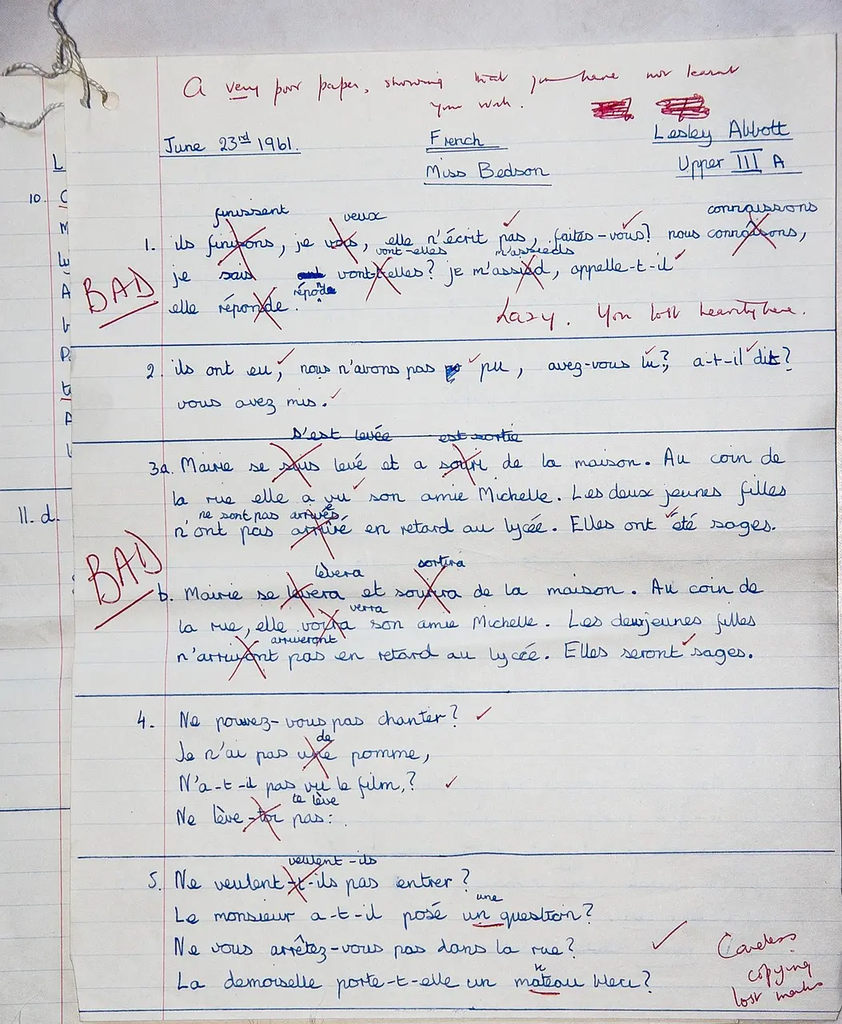 A very poor paper, showing that you have not learnt
your work.
June 23rd 1961. French Lesley Abbott
Miss Bedson Upper III A
L
10. C
M
W
A
P
A
11. d.
finissent veux connaissons
1. ils finissons, je vois, elle n'écrit pas, faites-vous? nous connaisons,
vont-elles m'assieds
je sais vont-t-elles? je m'assied, appelle-t-il
BAD
elle réponde. répond
Lazy. You lost heavily here.
2. ils ont eu, nous n'avons pas pu, avez-vous lu?, a-t-il dit?
vous avez mis.
s'est levée est sortie
3a. Mairie se suis levé et a souri de la maison. Au coin de
la rue elle a vu son amie Michelle. Les deux jeunes filles
ne sont pas arrivés
n'ont pas arrivé en retard au lycée. Elles ont été sages.
BAD
lèvera sortira
b. Mairie se levera et sourira de la maison. Au coin de
verra
la rue, elle voira son amie Michelle. Les deux jeunes filles
arriveront
n'arrivont pas en retard au lycée. Elles seront sages.
4. Ne pouvez-vous pas chanter?
de
Je n'ai pas une pomme,
N'a-t-il pas vu le film,?
te lève
Ne lève-toi pas:
veulent-ils
5. Ne veulent-t-ils pas entrer?
une
Le monsieur a-t-il posé un question?
Ne vous arrêtez-vous pas dans la rue?
La demoiselle porte-t-elle un mateau bleu?
n
Careless
copying
lost marks